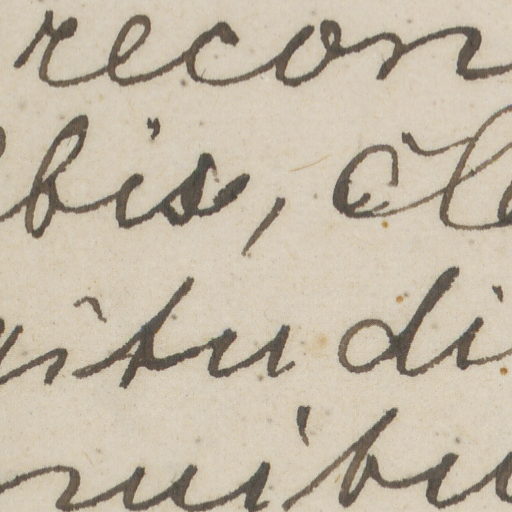 recon
bis, cle
situ di
nuibu